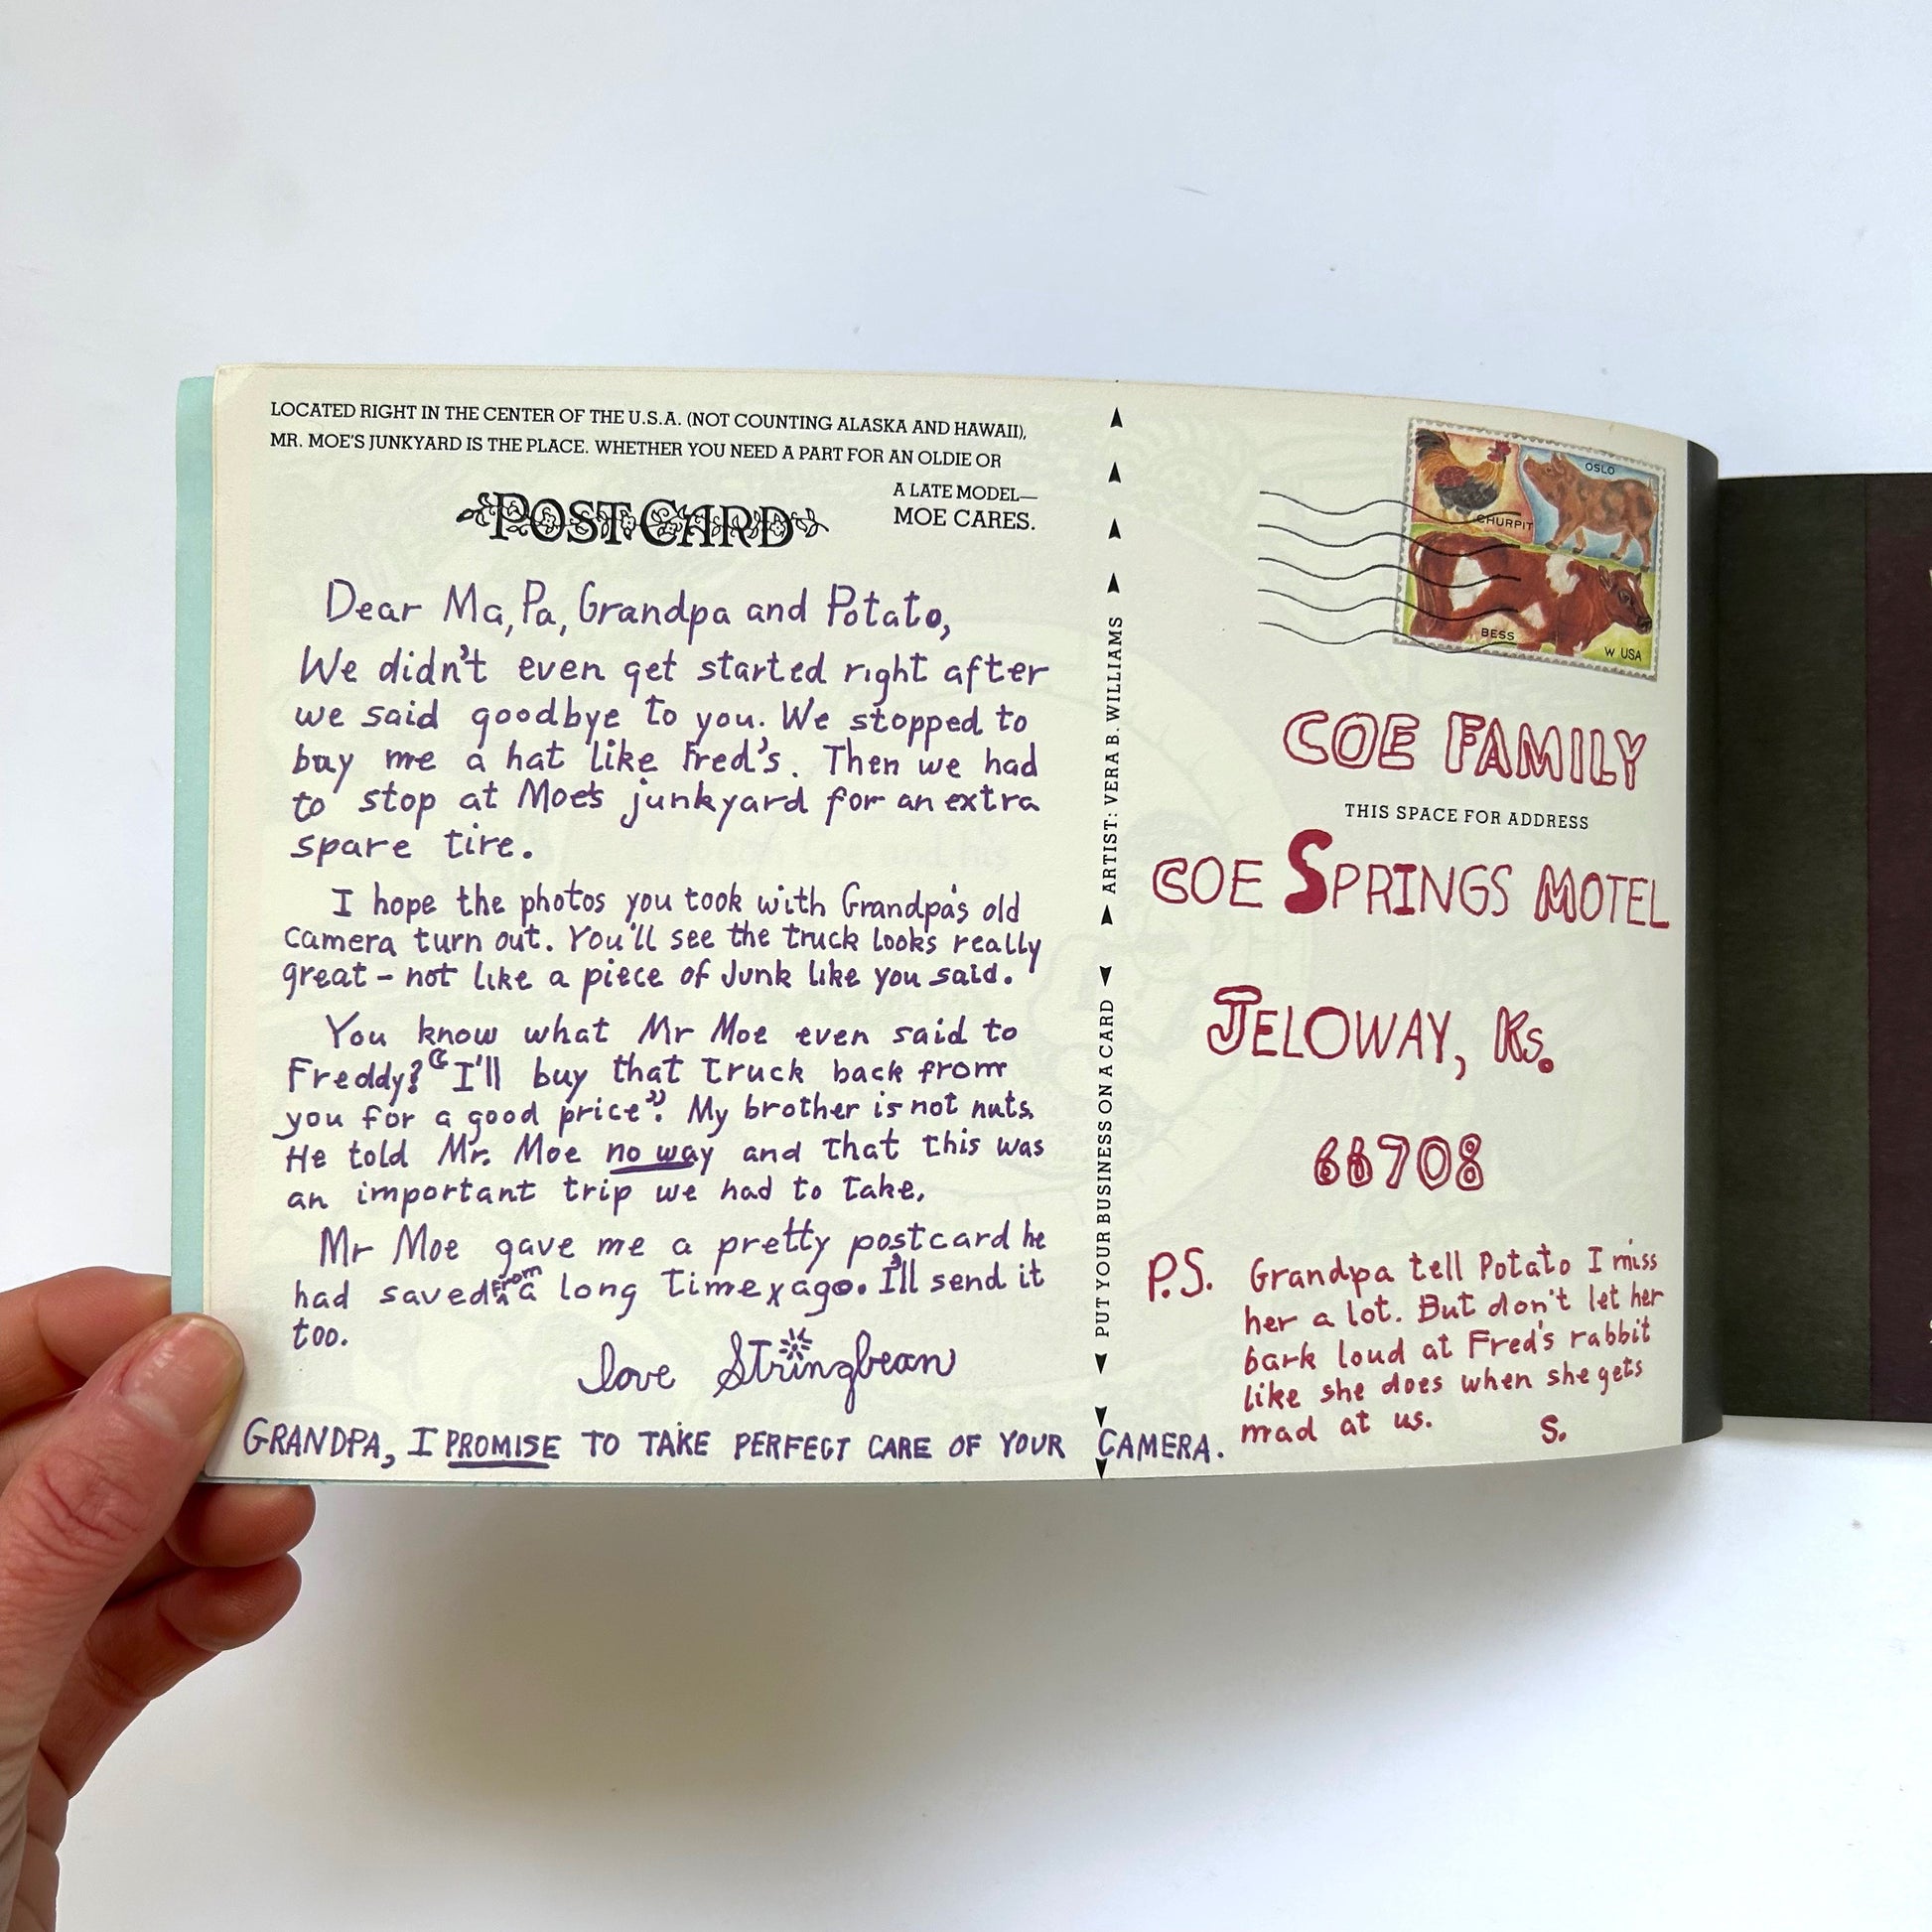 LOCATED RIGHT IN THE CENTER OF THE U.S.A. (NOT COUNTING ALASKA AND HAWAII),
MR. MOE'S JUNKYARD IS THE PLACE. WHETHER YOU NEED A PART FOR AN OLDIE OR
A LATE MODEL—
MOE CARES.
POST CARD
Dear Ma, Pa, Grandpa and Potato,
We didn't even get started right after
we said goodbye to you. We stopped to
buy me a hat like Fred's. Then we had
to stop at Moe's junkyard for an extra
spare tire.
I hope the photos you took with Grandpa's old
camera turn out. You'll see the truck looks really
great – not like a piece of Junk like you said.
You know what Mr Moe even said to
Freddy? "I'll buy that truck back from
you for a good price". My brother is not nuts.
He told Mr. Moe no way and that this was
an important trip we had to take.
Mr Moe gave me a pretty postcard he
had saved from a long time ago. I'll send it
too.
love Stringbean
GRANDPA, I PROMISE TO TAKE PERFECT CARE OF YOUR CAMERA.
PUT YOUR BUSINESS ON A CARD
ARTIST: VERA B. WILLIAMS
CHURPIT
OSLO
BESS
W USA
COE FAMILY
THIS SPACE FOR ADDRESS
COE SPRINGS MOTEL
JELOWAY, Ks.
66708
P.S. Grandpa tell Potato I miss
her a lot. But don't let her
bark loud at Fred's rabbit
like she does when she gets
mad at us. S.